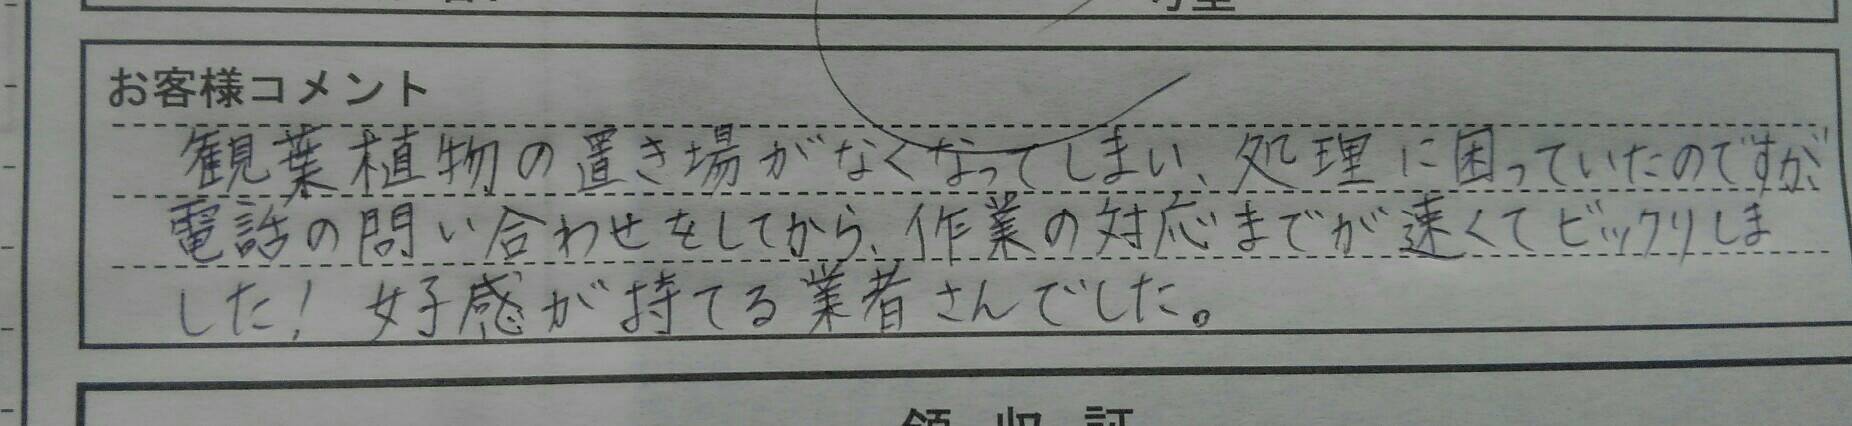 お客様コメント
観葉植物の置き場がなくなってしまい、処理に困っていたのですが、
電話の問い合わせをしてから、作業の対応までが速くてビックリしま
した！ 好感が持てる業者さんでした。
領収証